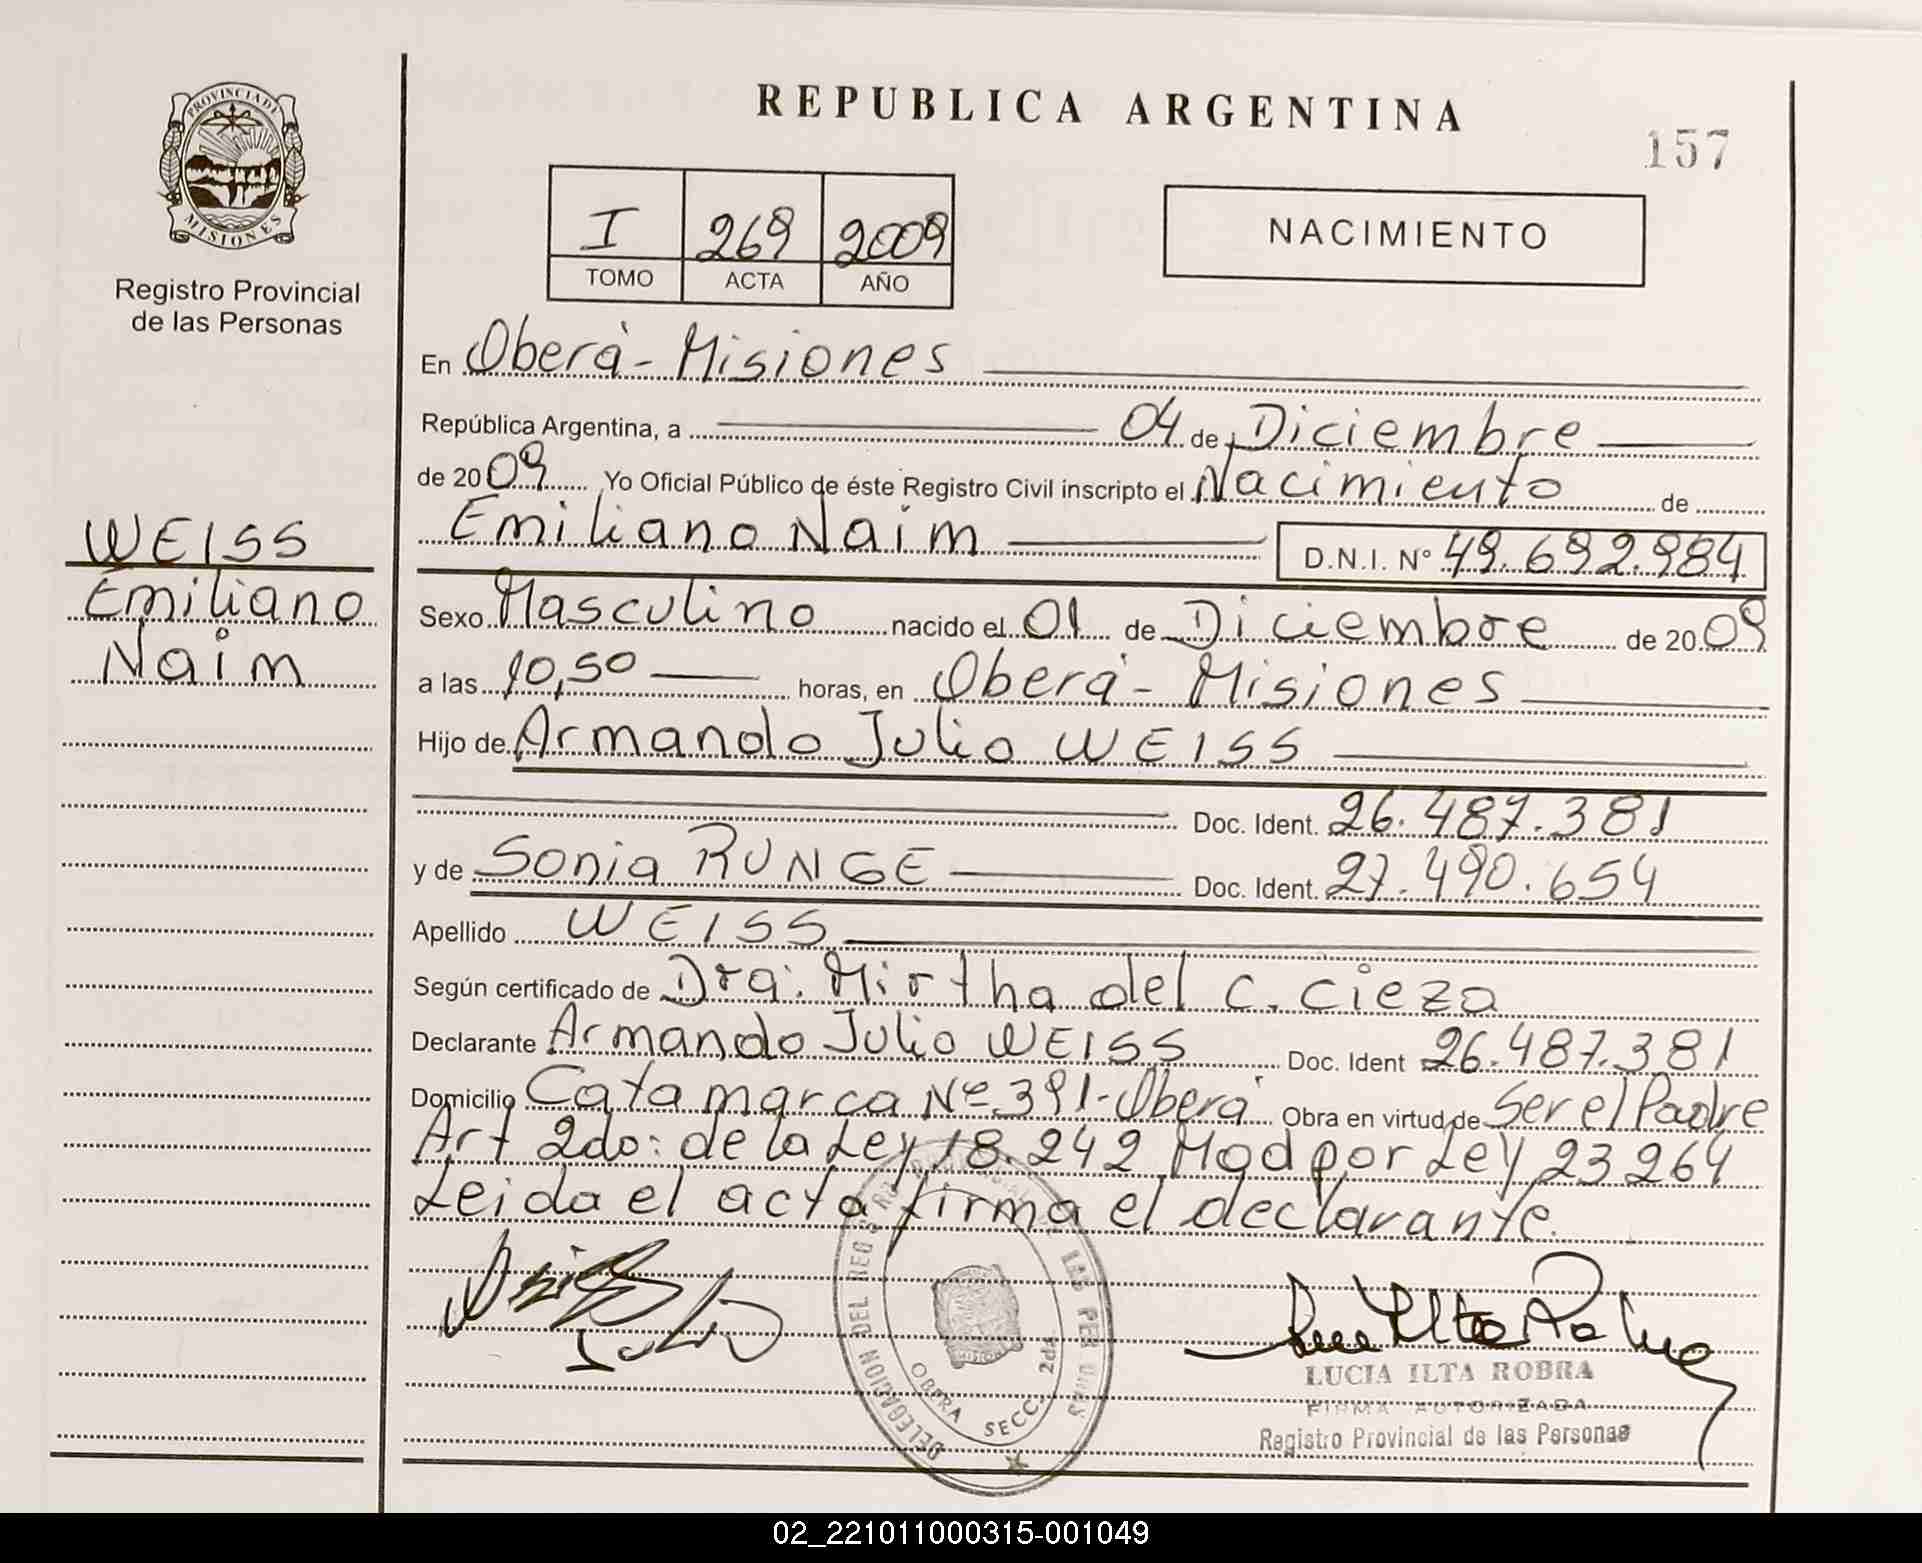 REPUBLICA ARGENTINA
157
PROVINCIA DE
MISIONES
Registro Provincial
de las Personas
I 269 2009
TOMO ACTA AÑO
NACIMIENTO
En Oberá - Misiones
República Argentina, a 04 de Diciembre
de 2009 Yo Oficial Público de éste Registro Civil inscripto el Nacimiento de
Emiliano Naim D.N.I. N° 49.692.984
WEISS
Emiliano
Naim
Sexo Masculino nacido el 01 de Diciembre de 2009
a las 10,50 horas, en Oberá - Misiones
Hijo de Armando Julio WEISS
Doc. Ident. 26.487.381
y de Sonia RUNGE Doc. Ident. 27.490.654
Apellido WEISS
Según certificado de Dra: Mirtha del C. Cieza
Declarante Armando Julio WEISS Doc. Ident 26.487.381
Domicilio Catamarca Nº 391 - Oberá Obra en virtud de Ser el Padre
Art 2do: de la Ley 18.242 Mod por Ley 23264
Leida el acta firma el declarante.
Julio
DELEGACION DEL REG
LAS PER
OBERA SECC. 2da
MISIONES
LUCIA ILTA ROBRA
FIRMA AUTORIZADA
Registro Provincial de las Personas
02_221011000315-001049